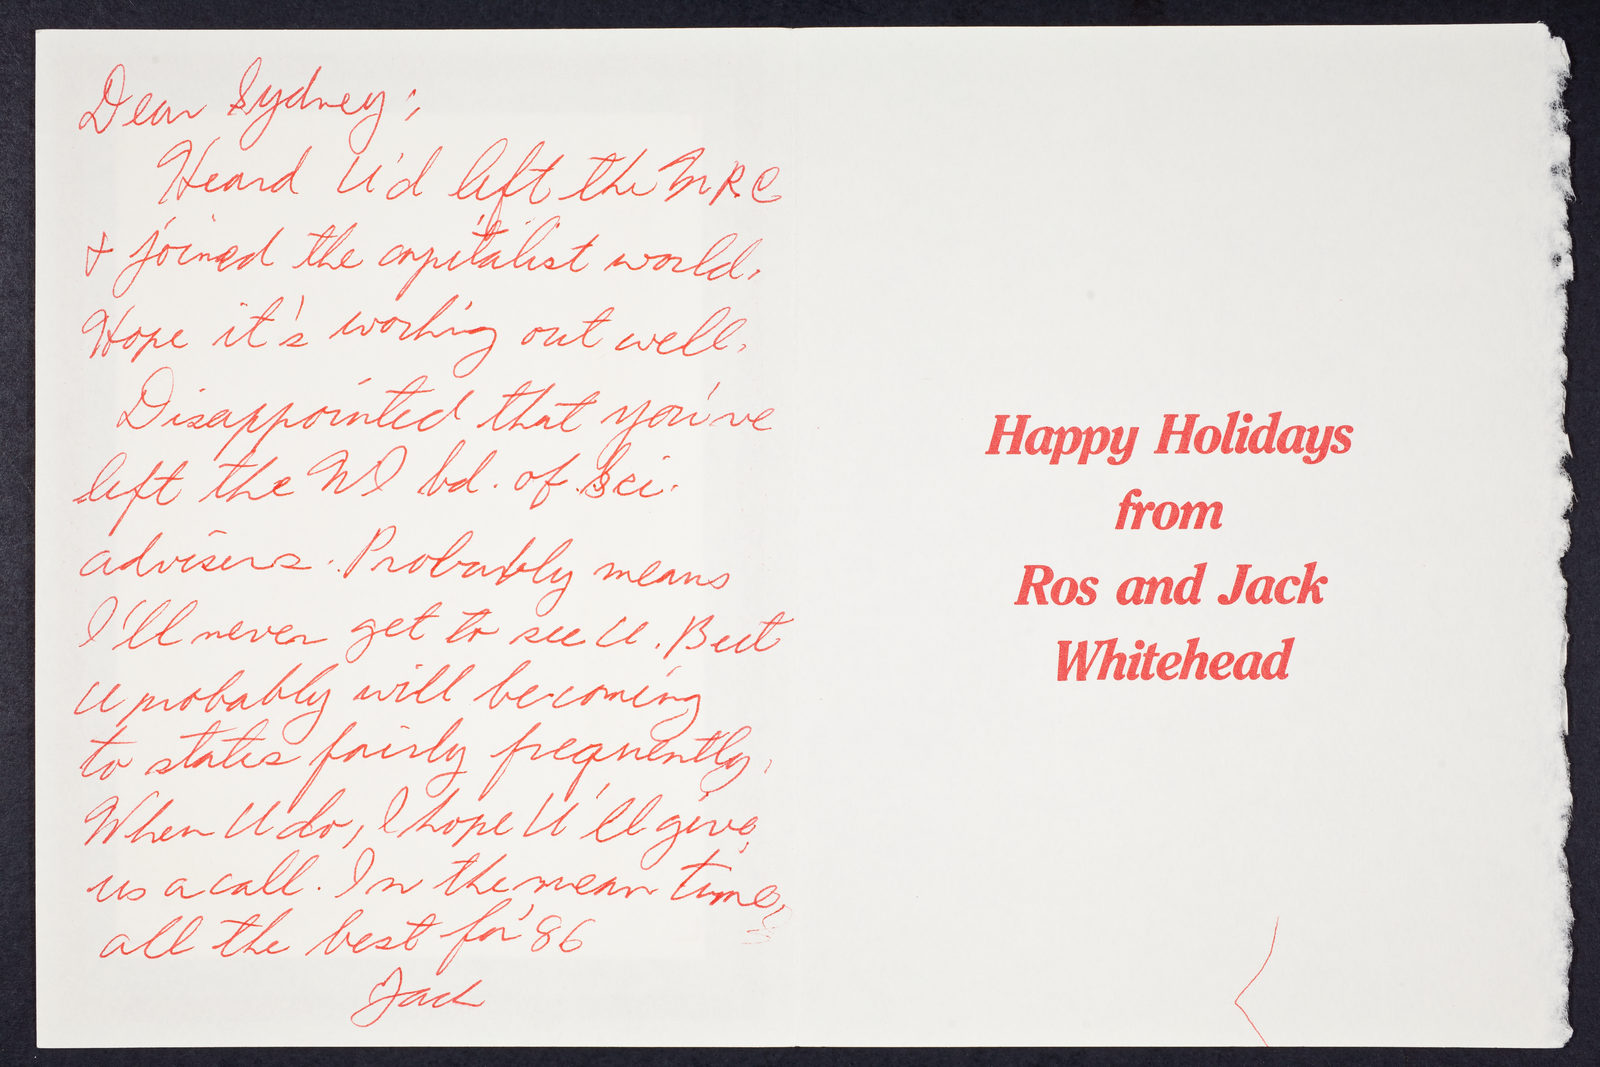 Dear Sydney:
Heard U'd left the MRC
& joined the capitalist world.
Hope it's working out well.
Disappointed that you've
left the WI bd. of Sci.
advisers. Probably means
I'll never get to see U. But
U probably will be coming
to states fairly frequently.
When U do, I hope U'll give
us a call. In the mean time,
all the best for '86
Jack
Happy Holidays
from
Ros and Jack
Whitehead